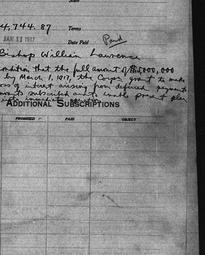 4,744.87 Terms
JAN 31 1917 Date Paid Paid
Bishop William Lawrence
condition that the full amount of $5,000,000
by March 1, 1917, the Corps. grant to make
loss of interest arising from deferred payments
subscribed and to enable present plan
ADDITIONAL SUBSCRIPTIONS
PROMISED PAID OBJECT